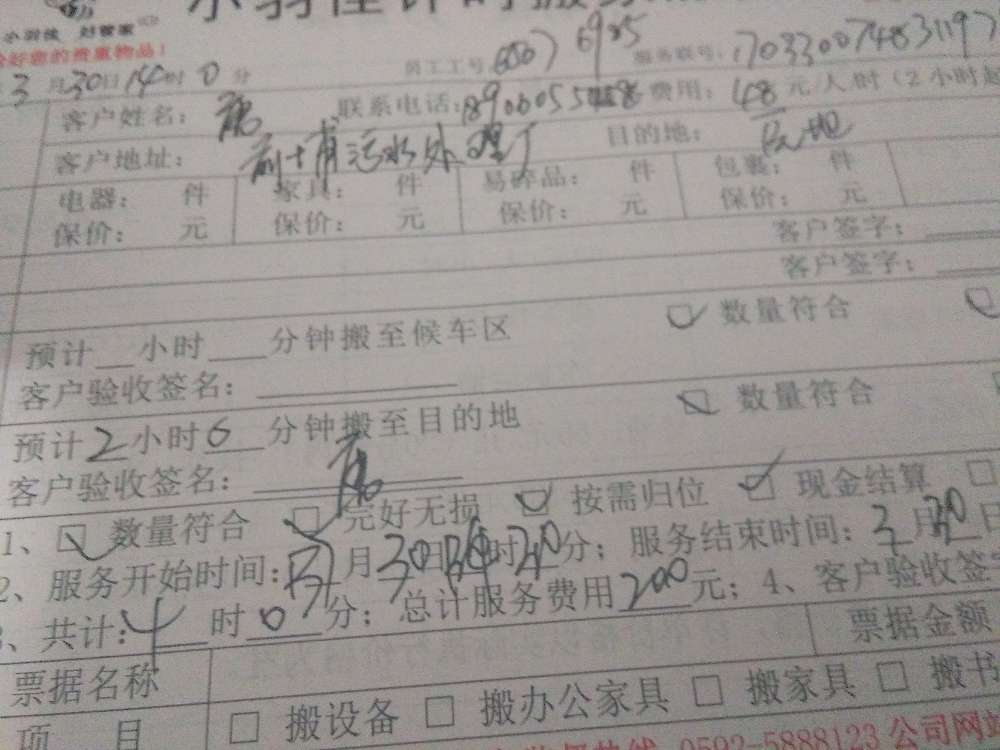 小羽佳 刘管家
好您的贵重物品!
3月30日14时0分 员工工号: 6507 6985 服务联号: 170330074831197
客户姓名: 联系电话: 费用: 48元/人/时(2小时起
客户地址: 前埔污水处理厂 目的地:
电器: 件 家具: 件 易碎品: 件 包裹: 件
保价: 元 保价: 元 保价: 元 保价: 元
客户签字:
客户签字:
预计 小时 分钟搬至候车区 数量符合
客户验收签名:
预计2小时6分钟搬至目的地 数量符合
客户验收签名:
1、 数量符合 完好无损 按需归位 现金结算
2、服务开始时间: 月30日 时30分; 服务结束时间: 3月30日
3、共计: 4时0分; 总计服务费用200元; 4、客户验收签
票据名称 票据金额
项目 搬设备 搬办公家具 搬家具 搬书
热线 0592-5888123 公司网站